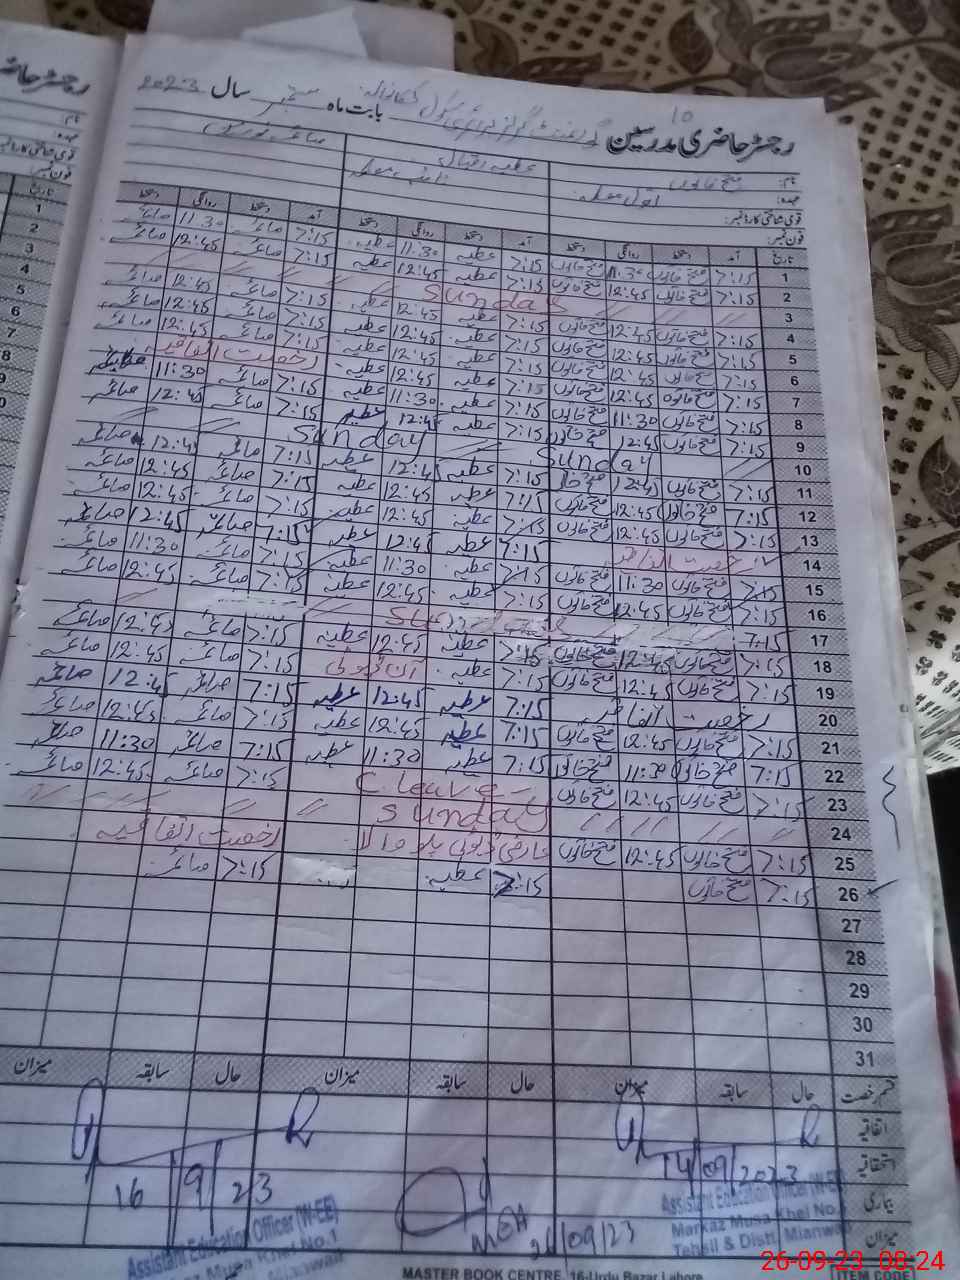 رجسٹر حاضری مدرسین گورنمنٹ گرلز پرائمری سکول بابت ماہ ستمبر سال 2023
10
نام: فتح خاتون عطیہ صائمہ
عہدہ:
قومی شناختی کارڈ نمبر:
فون نمبر:
تاریخ آمد دستخط روانگی دستخط آمد دستخط روانگی دستخط آمد دستخط روانگی دستخط
1 7:15 فتح خاتون 11:30 فتح خاتون 7:15 عطیہ 11:30 عطیہ 7:15 صائمہ 11:30 صائمہ
2 7:15 فتح خاتون 12:45 فتح خاتون 7:15 عطیہ 12:45 عطیہ 7:15 صائمہ 12:45 صائمہ
3 Sunday
4 7:15 فتح خاتون 12:45 فتح خاتون 7:15 عطیہ 12:45 عطیہ 7:15 صائمہ 12:45 صائمہ
5 7:15 فتح خاتون 12:45 فتح خاتون 7:15 عطیہ 12:45 عطیہ 7:15 صائمہ 12:45 صائمہ
6 7:15 فتح خاتون 12:45 فتح خاتون 7:15 عطیہ 12:45 عطیہ 7:15 صائمہ 12:45 صائمہ
7 7:15 فتح خاتون 12:45 فتح خاتون 7:15 عطیہ 12:45 عطیہ رخصت اتفاقیہ
8 7:15 فتح خاتون 11:30 فتح خاتون 7:15 عطیہ 11:30 عطیہ 7:15 صائمہ 11:30 صائمہ
9 7:15 فتح خاتون 12:45 فتح خاتون 7:15 عطیہ 12:45 عطیہ 7:15 صائمہ 12:45 صائمہ
10 Sunday Sunday
11 7:15 فتح خاتون 12:45 فتح خاتون 7:15 عطیہ 12:45 عطیہ 7:15 صائمہ 12:45 صائمہ
12 7:15 فتح خاتون 12:45 فتح خاتون 7:15 عطیہ 12:45 عطیہ 7:15 صائمہ 12:45 صائمہ
13 7:15 فتح خاتون 12:45 فتح خاتون 7:15 عطیہ 12:45 عطیہ 7:15 صائمہ 12:45 صائمہ
14 رخصت اتفاقیہ 7:15 عطیہ 12:45 عطیہ 7:15 صائمہ 12:45 صائمہ
15 7:15 فتح خاتون 11:30 فتح خاتون 7:15 عطیہ 11:30 عطیہ 7:15 صائمہ 11:30 صائمہ
16 7:15 فتح خاتون 12:45 فتح خاتون 7:15 عطیہ 12:45 عطیہ 7:15 صائمہ 12:45 صائمہ
17 7:15 Sunday
18 7:15 فتح خاتون 12:45 فتح خاتون 7:15 عطیہ 12:45 عطیہ 7:15 صائمہ 12:45 صائمہ
19 7:15 فتح خاتون 12:45 فتح خاتون 7:15 عطیہ آن ڈیوٹی 7:15 صائمہ 12:45 صائمہ
20 رخصت اتفاقیہ 7:15 عطیہ 12:45 عطیہ 7:15 صائمہ 12:45 صائمہ
21 7:15 فتح خاتون 12:45 فتح خاتون 7:15 عطیہ 12:45 عطیہ 7:15 صائمہ 12:45 صائمہ
22 7:15 فتح خاتون 11:30 فتح خاتون 7:15 عطیہ 11:30 عطیہ 7:15 صائمہ 11:30 صائمہ
23 7:15 فتح خاتون 12:45 فتح خاتون C. leave 7:15 صائمہ 12:45 صائمہ
24 Sunday
25 7:15 فتح خاتون 12:45 فتح خاتون عارضی ڈیوٹی رخصت اتفاقیہ
26 7:15 فتح خاتون 7:15 عطیہ 7:15 صائمہ
27
28
29
30
31
قسم رخصت حال سابقہ میزان حال سابقہ میزان حال سابقہ میزان
اتفاقیہ
استحقاقیہ
بیماری
میزان
14/09/2023
16/9/23
26/09/23
Assistant Education Officer (W-EE)
Markaz Musa Khel No.1
Tehsil & Distt. Mianwali
Assistant Education Officer (W-EE)
Musa Khel No.1
Mianwali
MASTER BOOK CENTRE, 16-Urdu Bazar Lahore
ITEM CODE
26-09-23 08:24
رجسٹر حاضری
نام:
عہدہ:
قومی شناختی کارڈ نمبر:
فون نمبر:
تاریخ
1
2
3
4
5
6
7
8
9
0